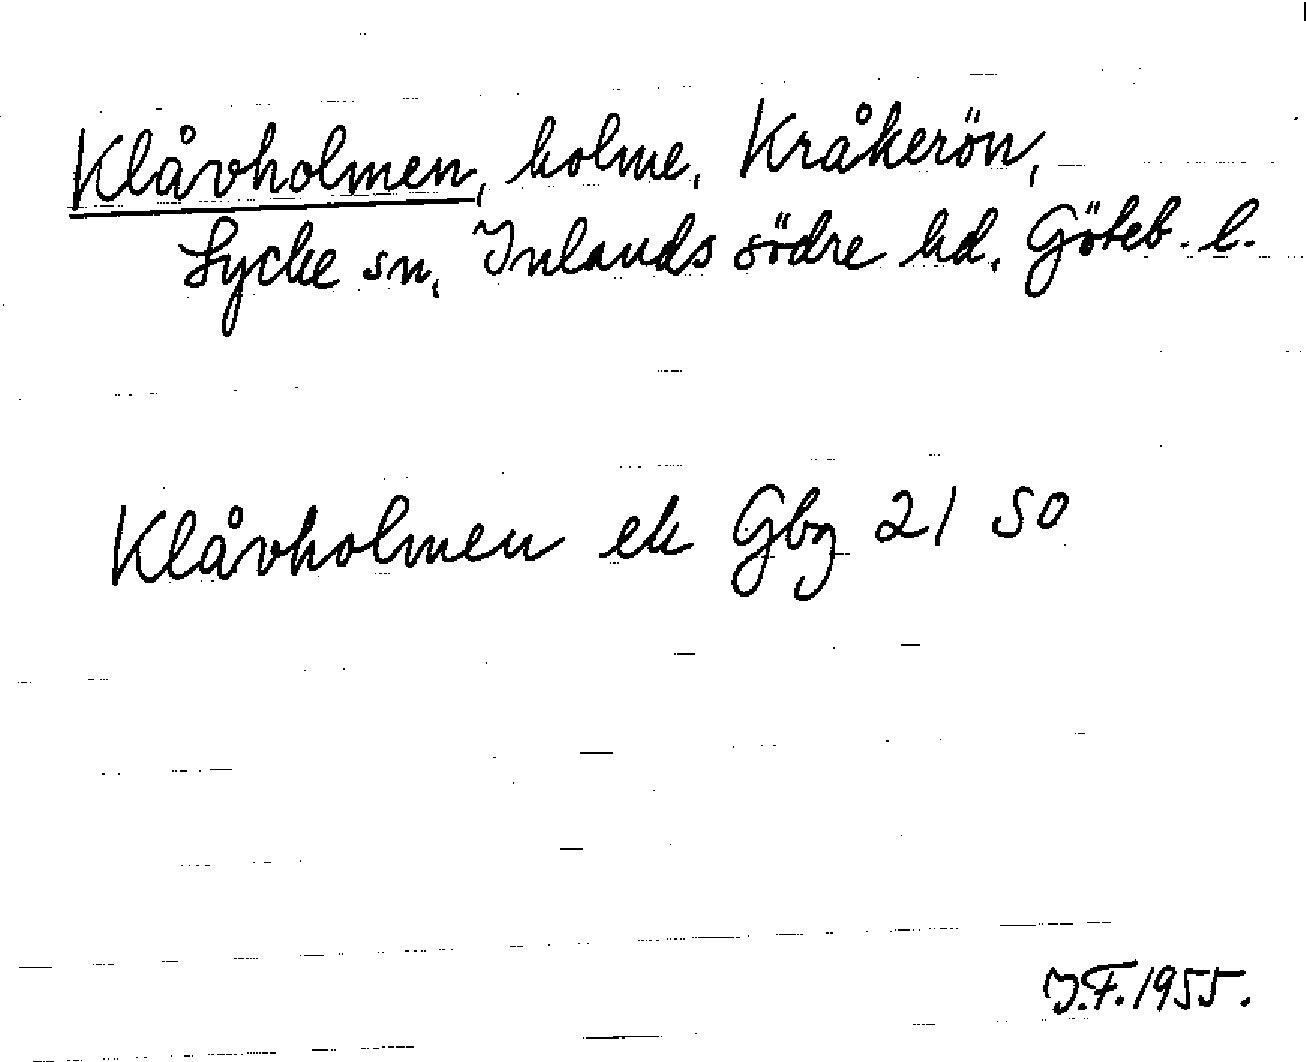 Klåvholmen, holme, Kråkerön,
Lycke sn, Inlands södre hd, Göteb. l.
Klåvholmen ek Gbg 21 SO
I.F. 1955.